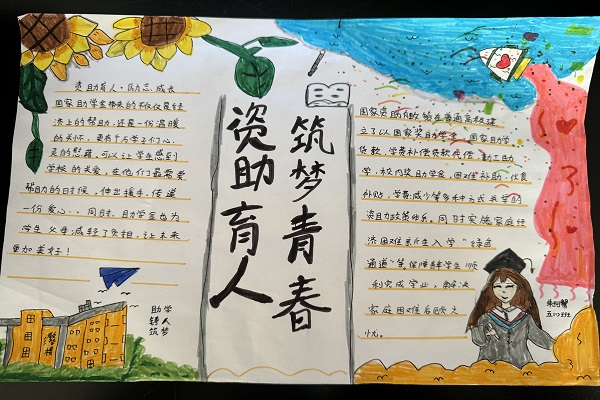 资助育人·励志成长
国家助学金带来的不仅仅是经
济上的帮助,还是一份温暖
的关怀,更有千万学子们心
灵的慰藉,可以让学生感到
学校的关爱,在他们最需要
帮助的时候,伸出援手,传递
一份爱心。同时,助学金也为
学生父母减轻了负担,让未来
更加美好!
助学
铸人
筑梦
资助育人
筑梦青春
国家资助政策在普通高校建
立了以国家奖助学金、国家助学
贷款、学费补偿贷款代偿、勤工助
学、校内奖助学金、困难补助、伙食
补贴、学费减免等多种方式并举的
资助政策体系。同时实施家庭经
济困难新生入学“绿色
通道”等,保障学生顺
利完成学业,解决
家庭困难后顾之
忧。